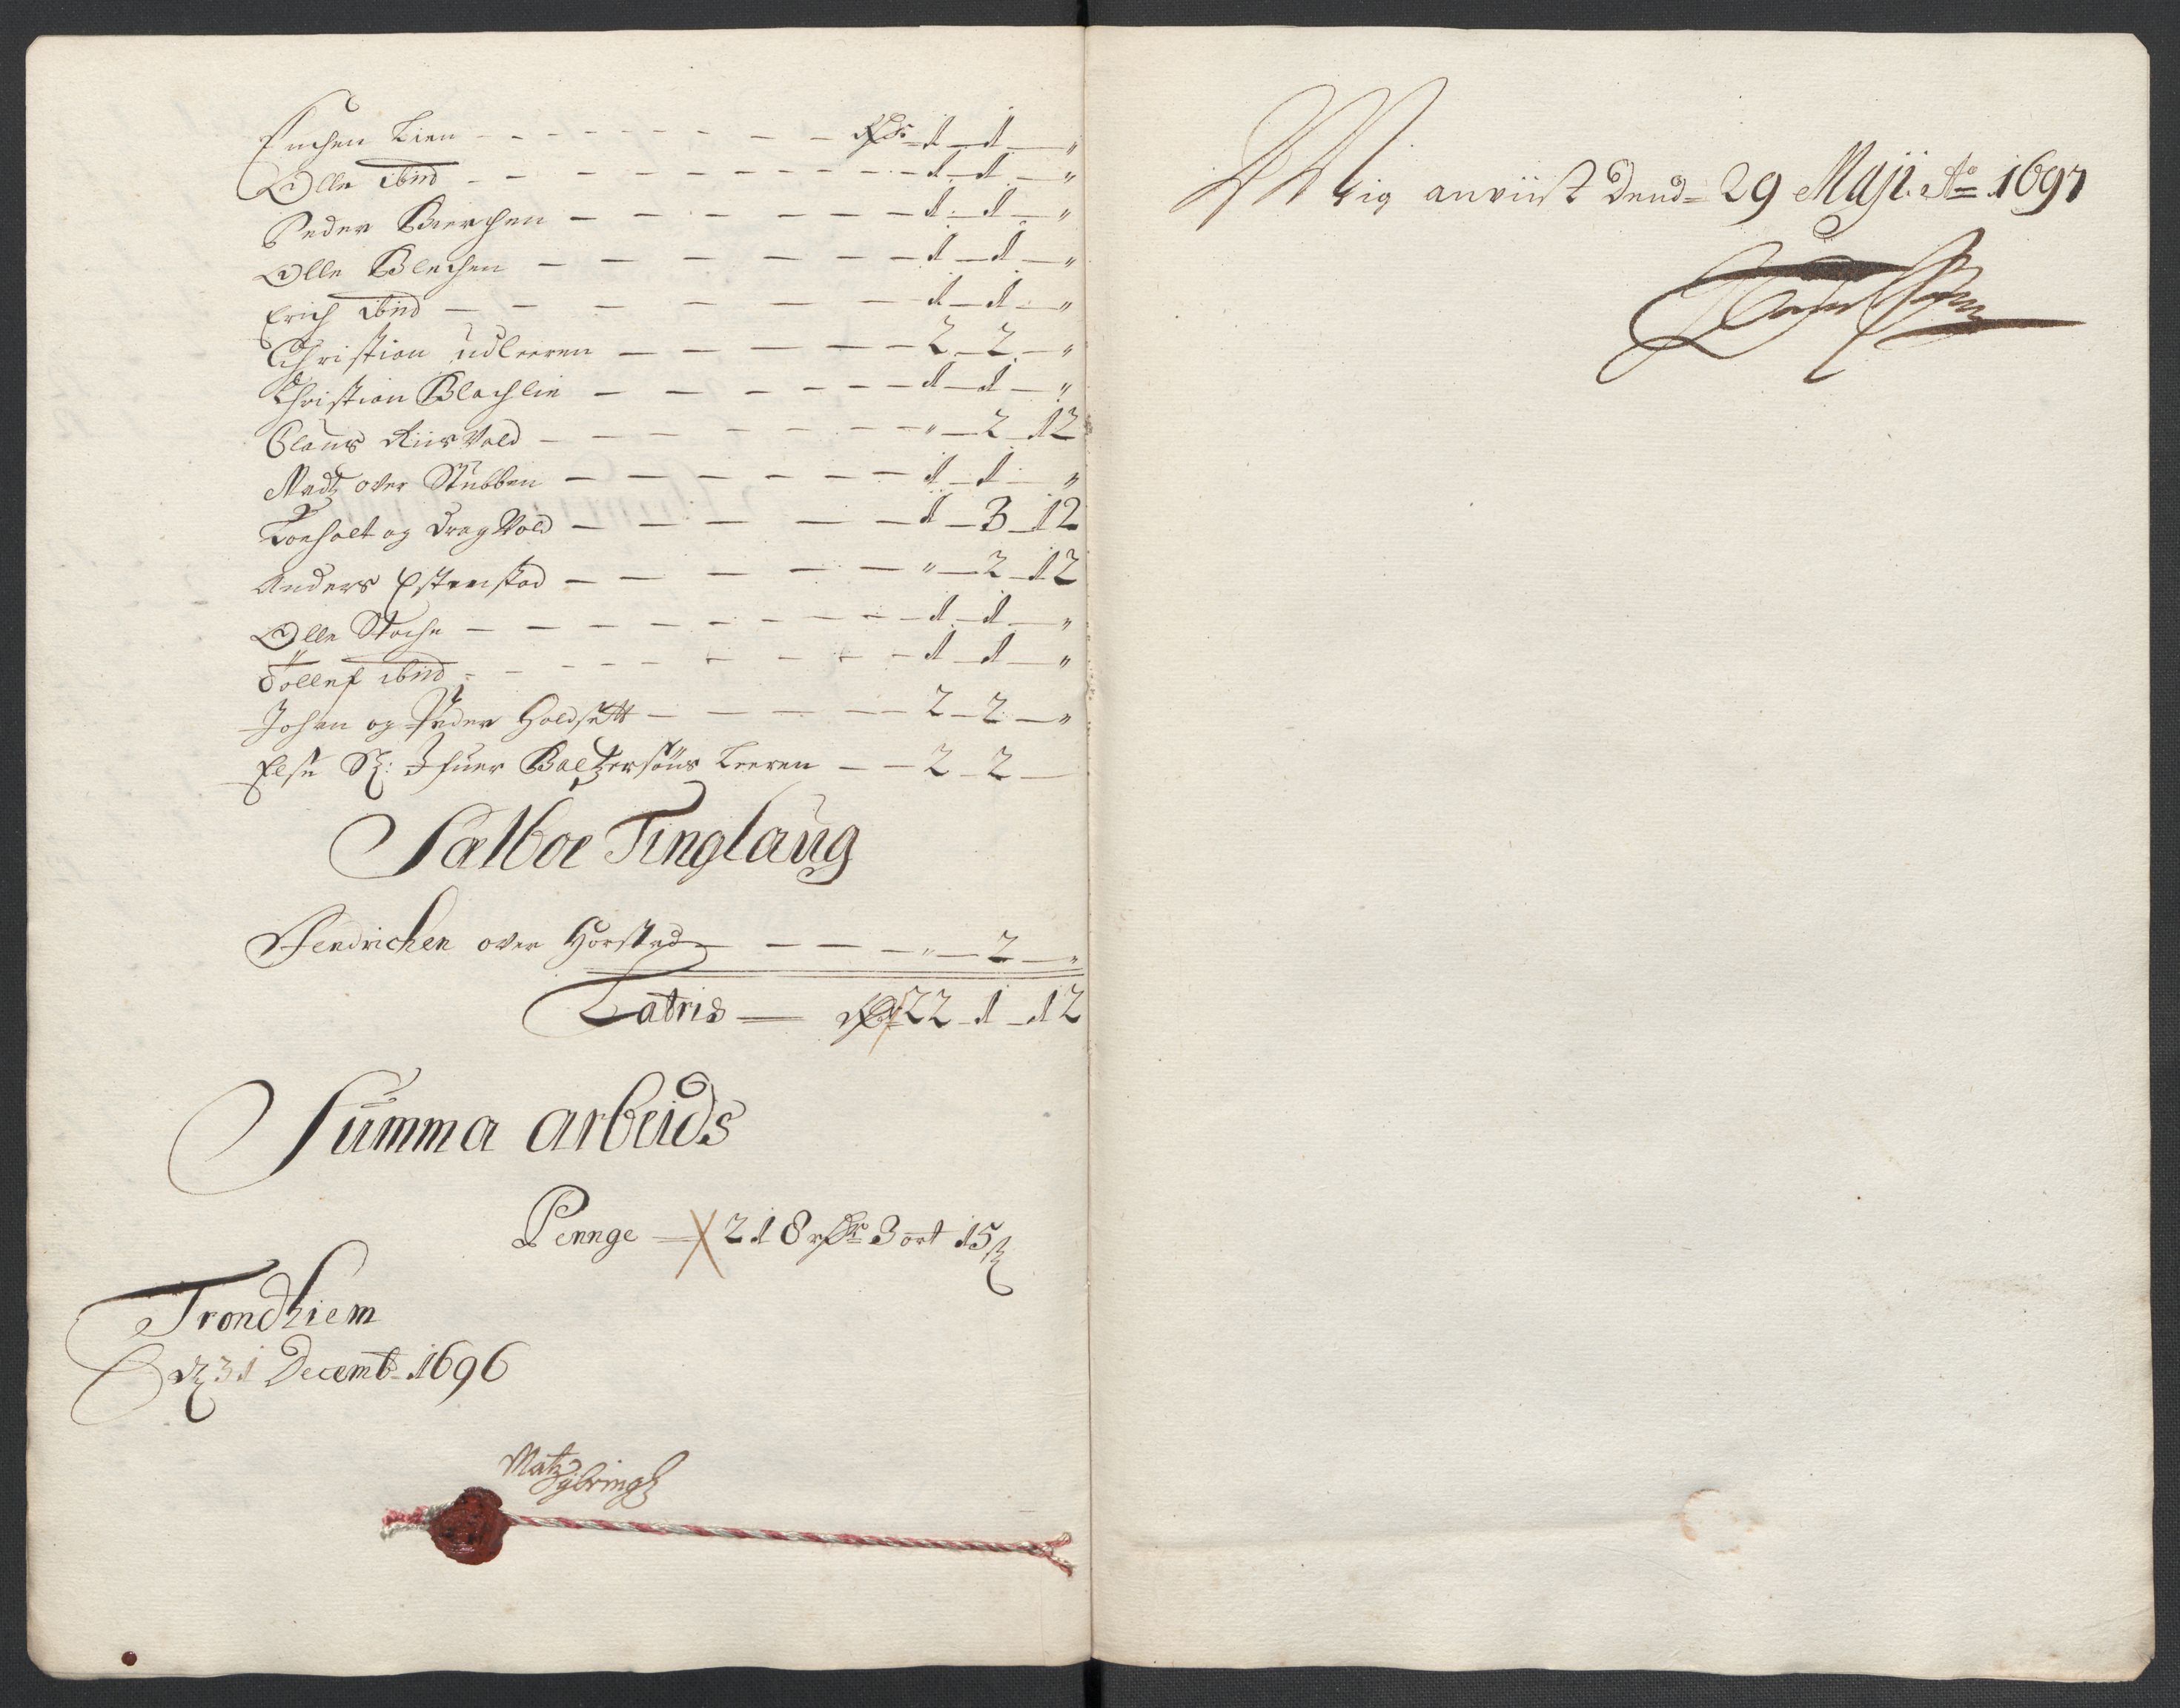 Enchen Lien - - - - - - - - Rdr 1 - 1 - "
Olle ibid - - - - - - - - - 1 - 1 - "
Peder Bierchen - - - - - - - 1 - 1 - "
Olle Blechen - - - - - - - 1 - 1 - "
Erich ibid - - - - - - - 1 - 1 - "
Christian udleeren - - - - - 2 - 2 - "
Christian Blachlie - - - - - - 1 - 1 - "
Claus Riisvold - - - - - - " - 2 - 12
Madtz over Stubben - - - - - - 1 - 1 - "
Loeholt og Dragvold - - - - - 1 - 3 - 12
Anders Estenstad - - - - - " - 2 - 12
Olle Stoche - - - - - - - 1 - 1 - "
Tollef ibid - - - - - - - 1 - 1 - "
Johan og Peder Holdsett - - - - - 2 - 2 - "
Else Sl: Ifuer Baltzersøns Leeren - - 2 - 2 -
Sælboe Tinglaug
Hendrichen over Horsted - - - - " - 2 - "
Latris - Rdr 22 - 1 - 12
Summa arbeids
Pennge - 218 rdr 3 ort 15 s
Trondhiem
dz 31 Decemb 1696
Matz Sybringh
Mig anviist Dend 29 Maji Ao 1697